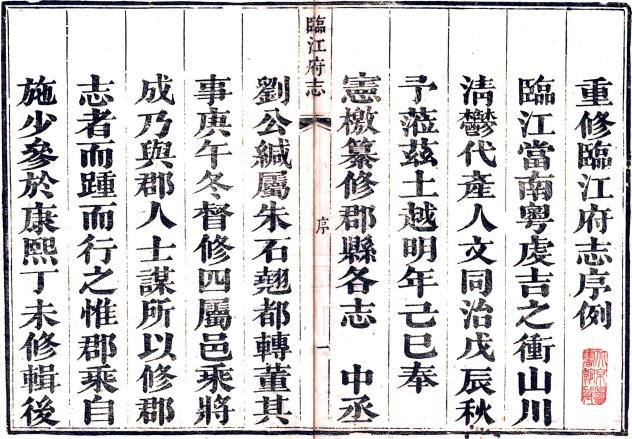 重修臨江府志序例
臨江當南粵虔吉之衝山川
清鬱代產人文同治戊辰秋
予蒞茲土越明年己巳奉
憲檄纂修郡縣各志　中丞
臨江府志
序
一
劉公緘屬朱石翹都轉董其
事庚午冬督修四屬邑乘將
成乃與郡人士謀所以修郡
志者而踵而行之惟郡乘自
施少參於康熙丁未修輯後